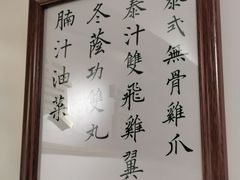 泰式無骨雞爪
泰汁雙飛雞翼
冬蔭功雙丸
腩汁油菜